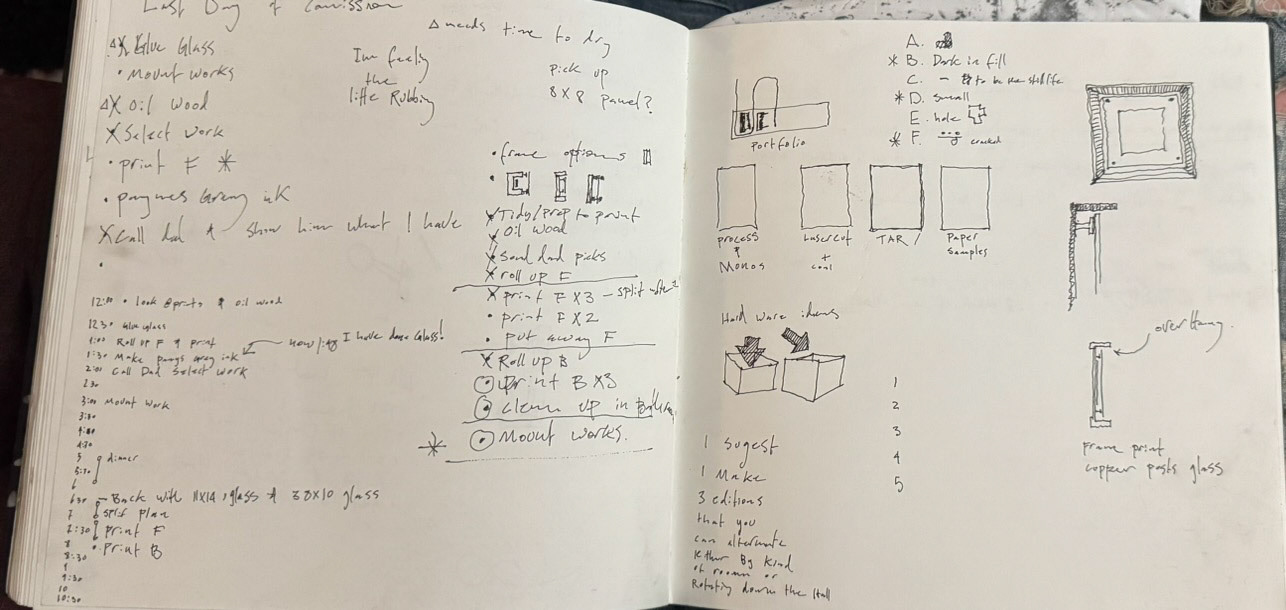 Last Day of
Δ needs time to dry
Glue Glass
• Mount works
Δ X Oil wood
X Select work
• print F *
• paynes Grey ink
X Call dad & show him what I have
•
Im feeling
the
little Rubbing
pick up
8x8 panel?
• frame options
•
X Tidy/prep to print
X Oil wood
X Send dad picks
X roll up F
X print F X3 - split
• print F X2
• put away F
X Roll up B
print B X3
clean up in
* Mount works.
12:00 • look @ prints & oil wood
12:30 Glue glass
1:00 Roll up F & print
1:30 Make paynes grey ink
I have done Glass!
2:00 Call Dad Select work
2:30
3:00 Mount work
3:30
4:00
4:30
5 dinner
5:30
6
6:30 - Back with 11x14 glass & 8x10 glass
7 split plan
7:30 print F
8 • print B
8:30
9
9:30
10
10:30
A.
* B. Dark in fill
C. - to be the still life
* D. small
E. hole
* F. cracked
Portfolio
process
&
Monos
Lasercut
+
coal
TAR
Paper
Samples
Hard ware ideas
over Hang.
frame print
copper posts glass
1
2
3
4
5
I Sugest
I Make
3 editions
that you
can alternate
By kind
of room or
Rotating down the Hall